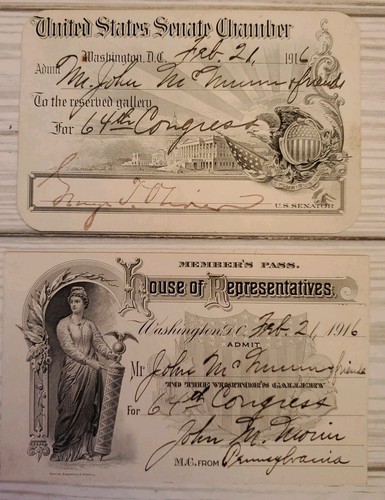 United States Senate Chamber
Washington, D.C. Feb. 21, 1916
Admit
Mr. John McMunn & friends
To the reserved gallery
For 64th Congress
George T. Oliver
U.S. SENATOR
MEMBER'S PASS.
House of Representatives.
Washington, D.C. Feb. 21, 1916
ADMIT
Mr John McMunn & friends
TO THE VISITOR'S GALLERY
For 64th Congress
John M. Morin
M.C. FROM Pennsylvania